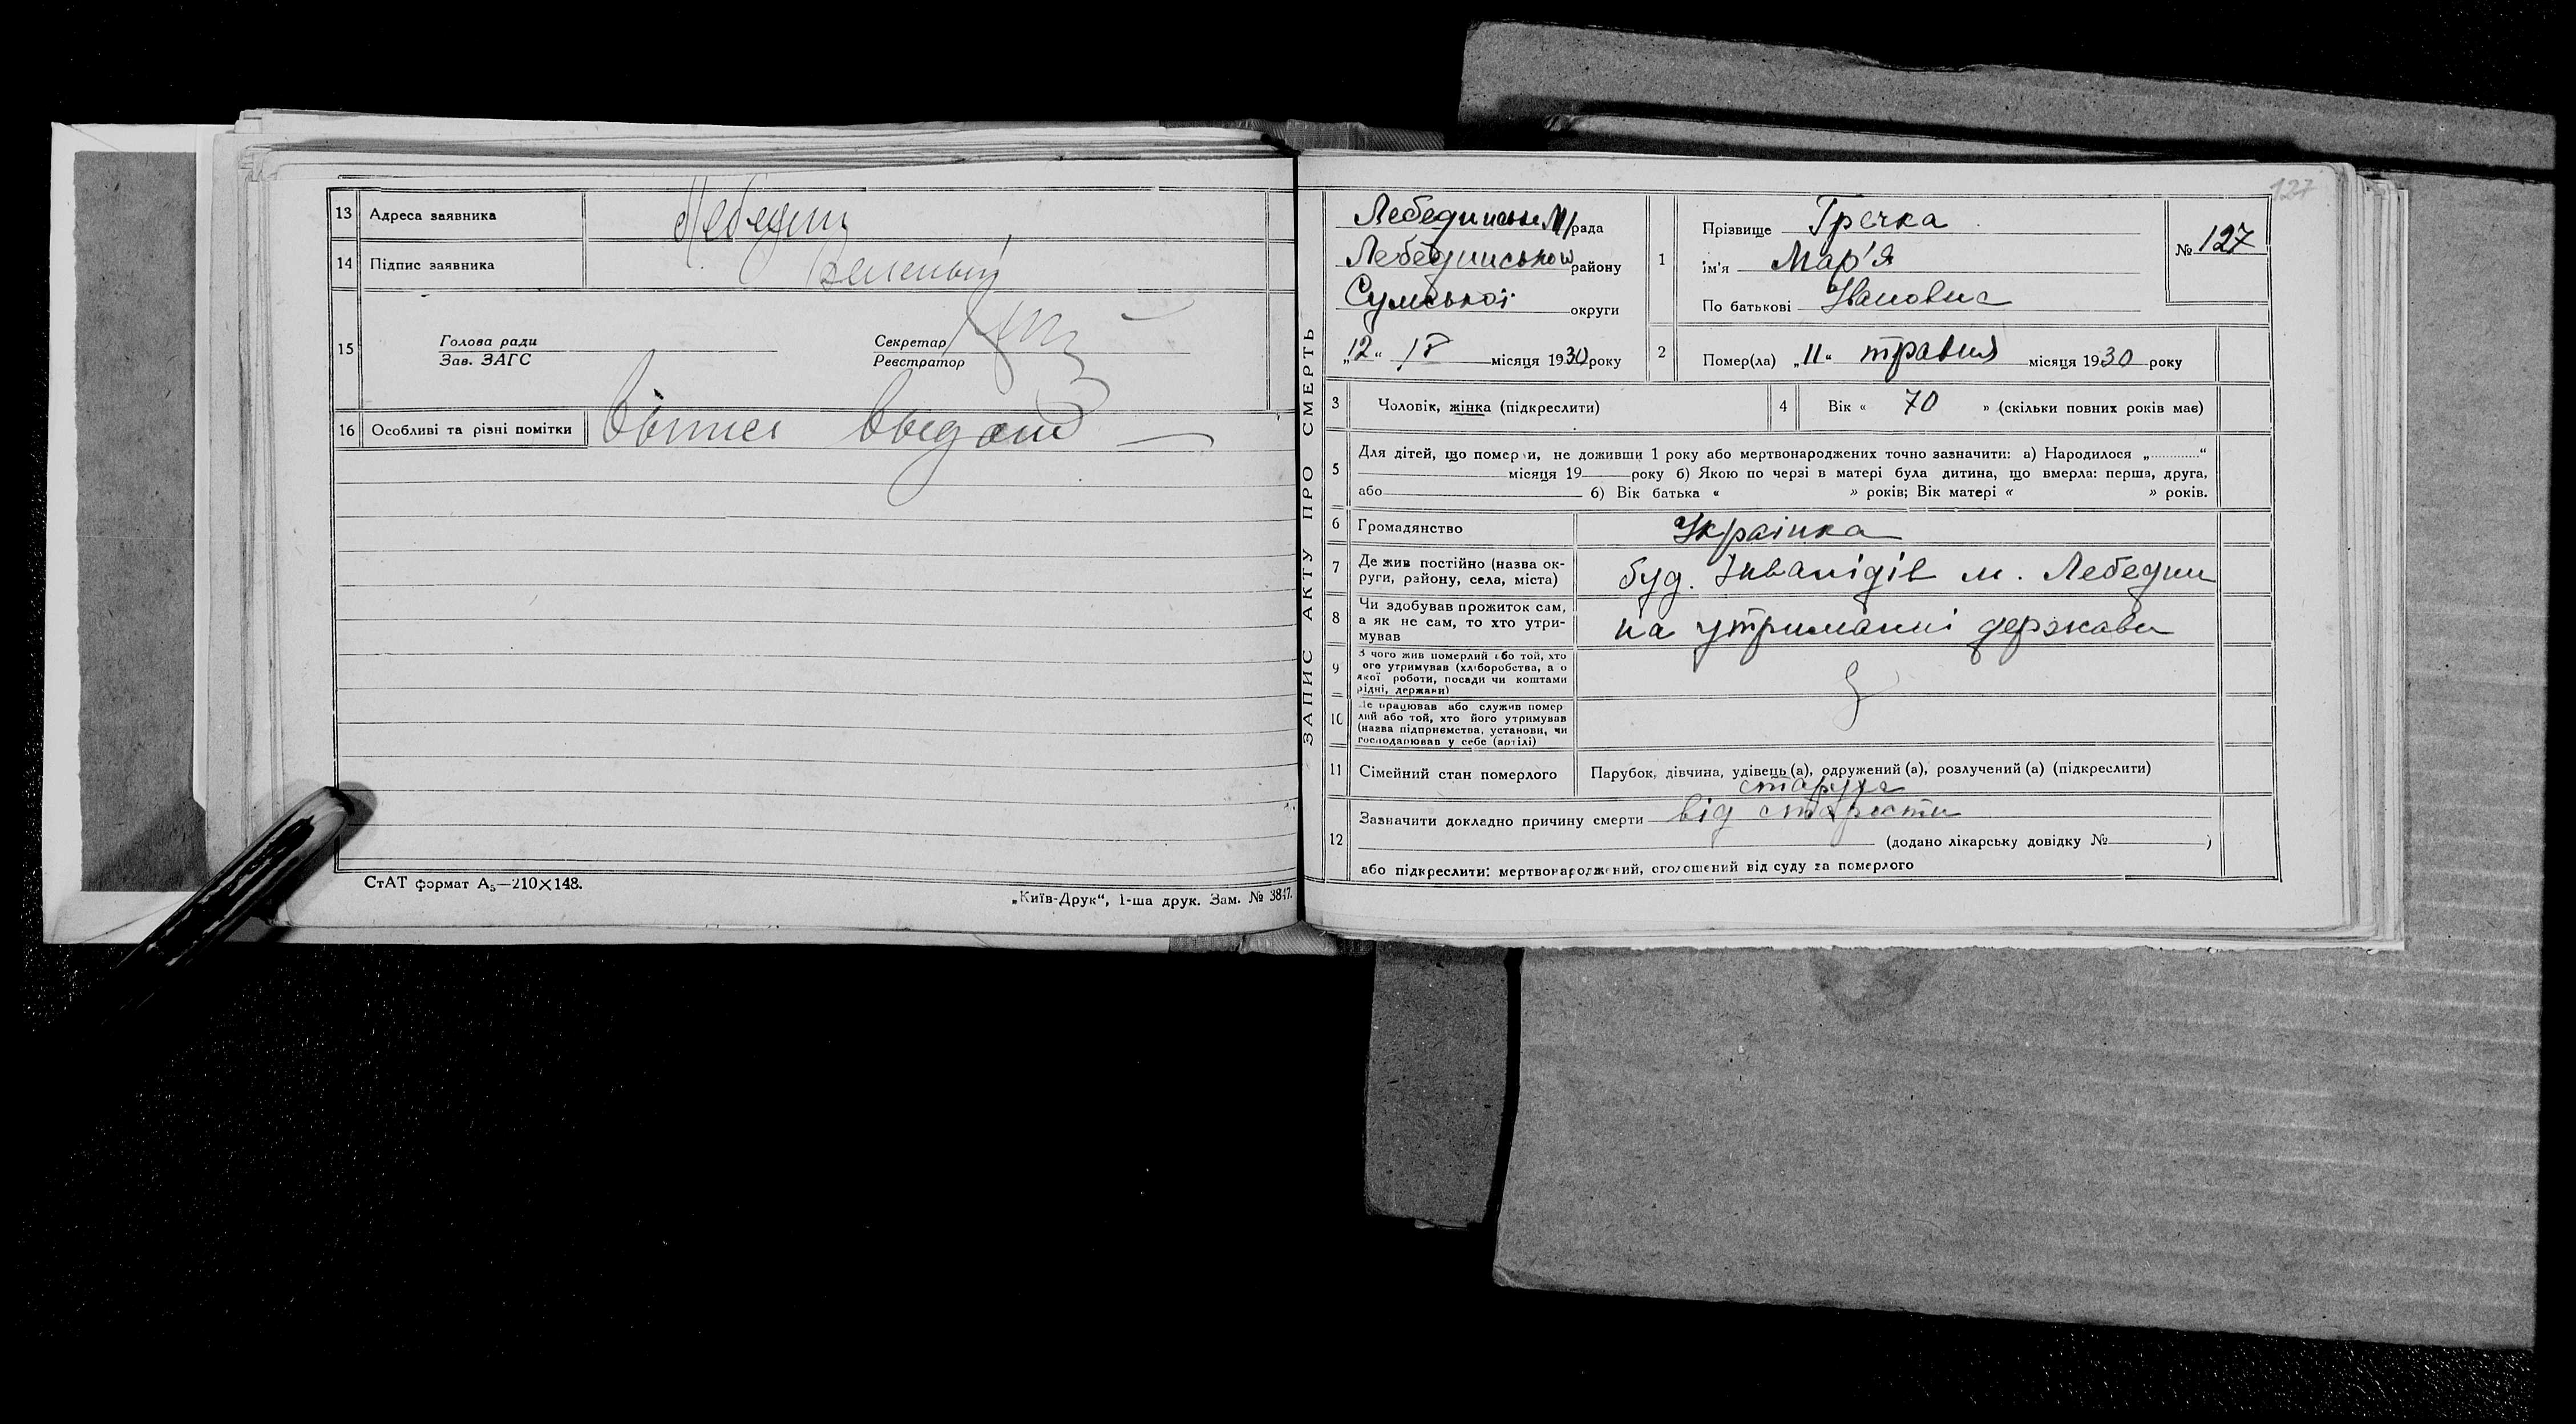 13 Адреса заявника Лебедин
14 Підпис заявника Зеленый
15
Голова ради
Зав. ЗАГС
Секретар
Реєстратор
16 Особливі та різні помітки
СтАТ формат А₅—210×148.
„Київ-Друк“, 1-ша друк. Зам. № 3847.
127
ЗАПИС АКТУ ПРО СМЕРТЬ
Лебединська М/рада
Лебединського району
Сумської округи
„12“ місяця 1930 року
№ 127
1 Прізвище Гречка
ім'я Мар'я
По батькові Івановна
2 Помер(ла) „11“ травня місяця 1930 року
3 Чоловік, жінка (підкреслити)
4 Вік « 70 » (скільки повних років має)
5 Для дітей, що померли, не доживши 1 року або мертвонароджених точно зазначити: а) Народилося „............“
місяця 19 року б) Якою по черзі в матері була дитина, що вмерла: перша, друга,
або б) Вік батька « » років; Вік матері « » років.
6 Громадянство Українка
7 Де жив постійно (назва ок-
руги, району, села, міста) буд. Інвалідів м. Лебедин
8 Чи здобував прожиток сам,
а як не сам, то хто утри-
мував на утриманні держави
9 З чого жив померлий або той, хто
ого утримував (хліборобства, а о
якої роботи, посади чи коштами
рідні, держави)
10 Де працював або служив помер
лий або той, хто його утримував
(назва підприємства, установи, чи
господарював у себе (артілі)
11 Сімейний стан померлого Парубок, дівчина, удівець (а), одружений (а), розлучений (а) (підкреслити)
старуха
12 Зазначити докладно причину смерти від старости
(додано лікарську довідку № )
або підкреслити: мертвонароджений, оголошений від суду за померлого